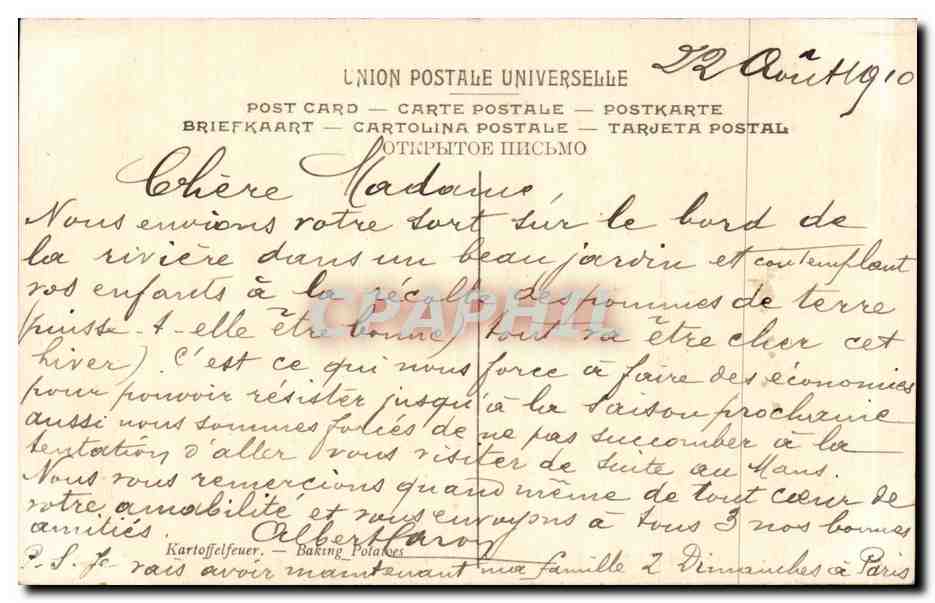 22 Août 1910
UNION POSTALE UNIVERSELLE
POST CARD — CARTE POSTALE — POSTKARTE
BRIEFKAART — CARTOLINA POSTALE — TARJETA POSTAL
ОТКРЫТОЕ ПИСЬМО
Chère Madame,
Nous envions votre sort sur le bord de
la rivière dans un beau jardin et contemplant
vos enfants à la récolte des pommes de terre
(puisse-t-elle être bonne) tout va être cher cet
hiver). C'est ce qui nous force à faire des économies
pour pouvoir résister jusqu'à la saison prochaine
aussi nous sommes forcés de ne pas succomber à la
tentation d'aller vous visiter de suite au Mans.
Nous vous remercions quand même de tout cœur de
votre amabilité et vous envoyons à tous 3 nos bonnes
amitiés. Albert
Kartoffelfeuer. — Baking Potatoes
P.S. Je vais avoir maintenant ma famille 2 Dimanches à Paris
CPARHII